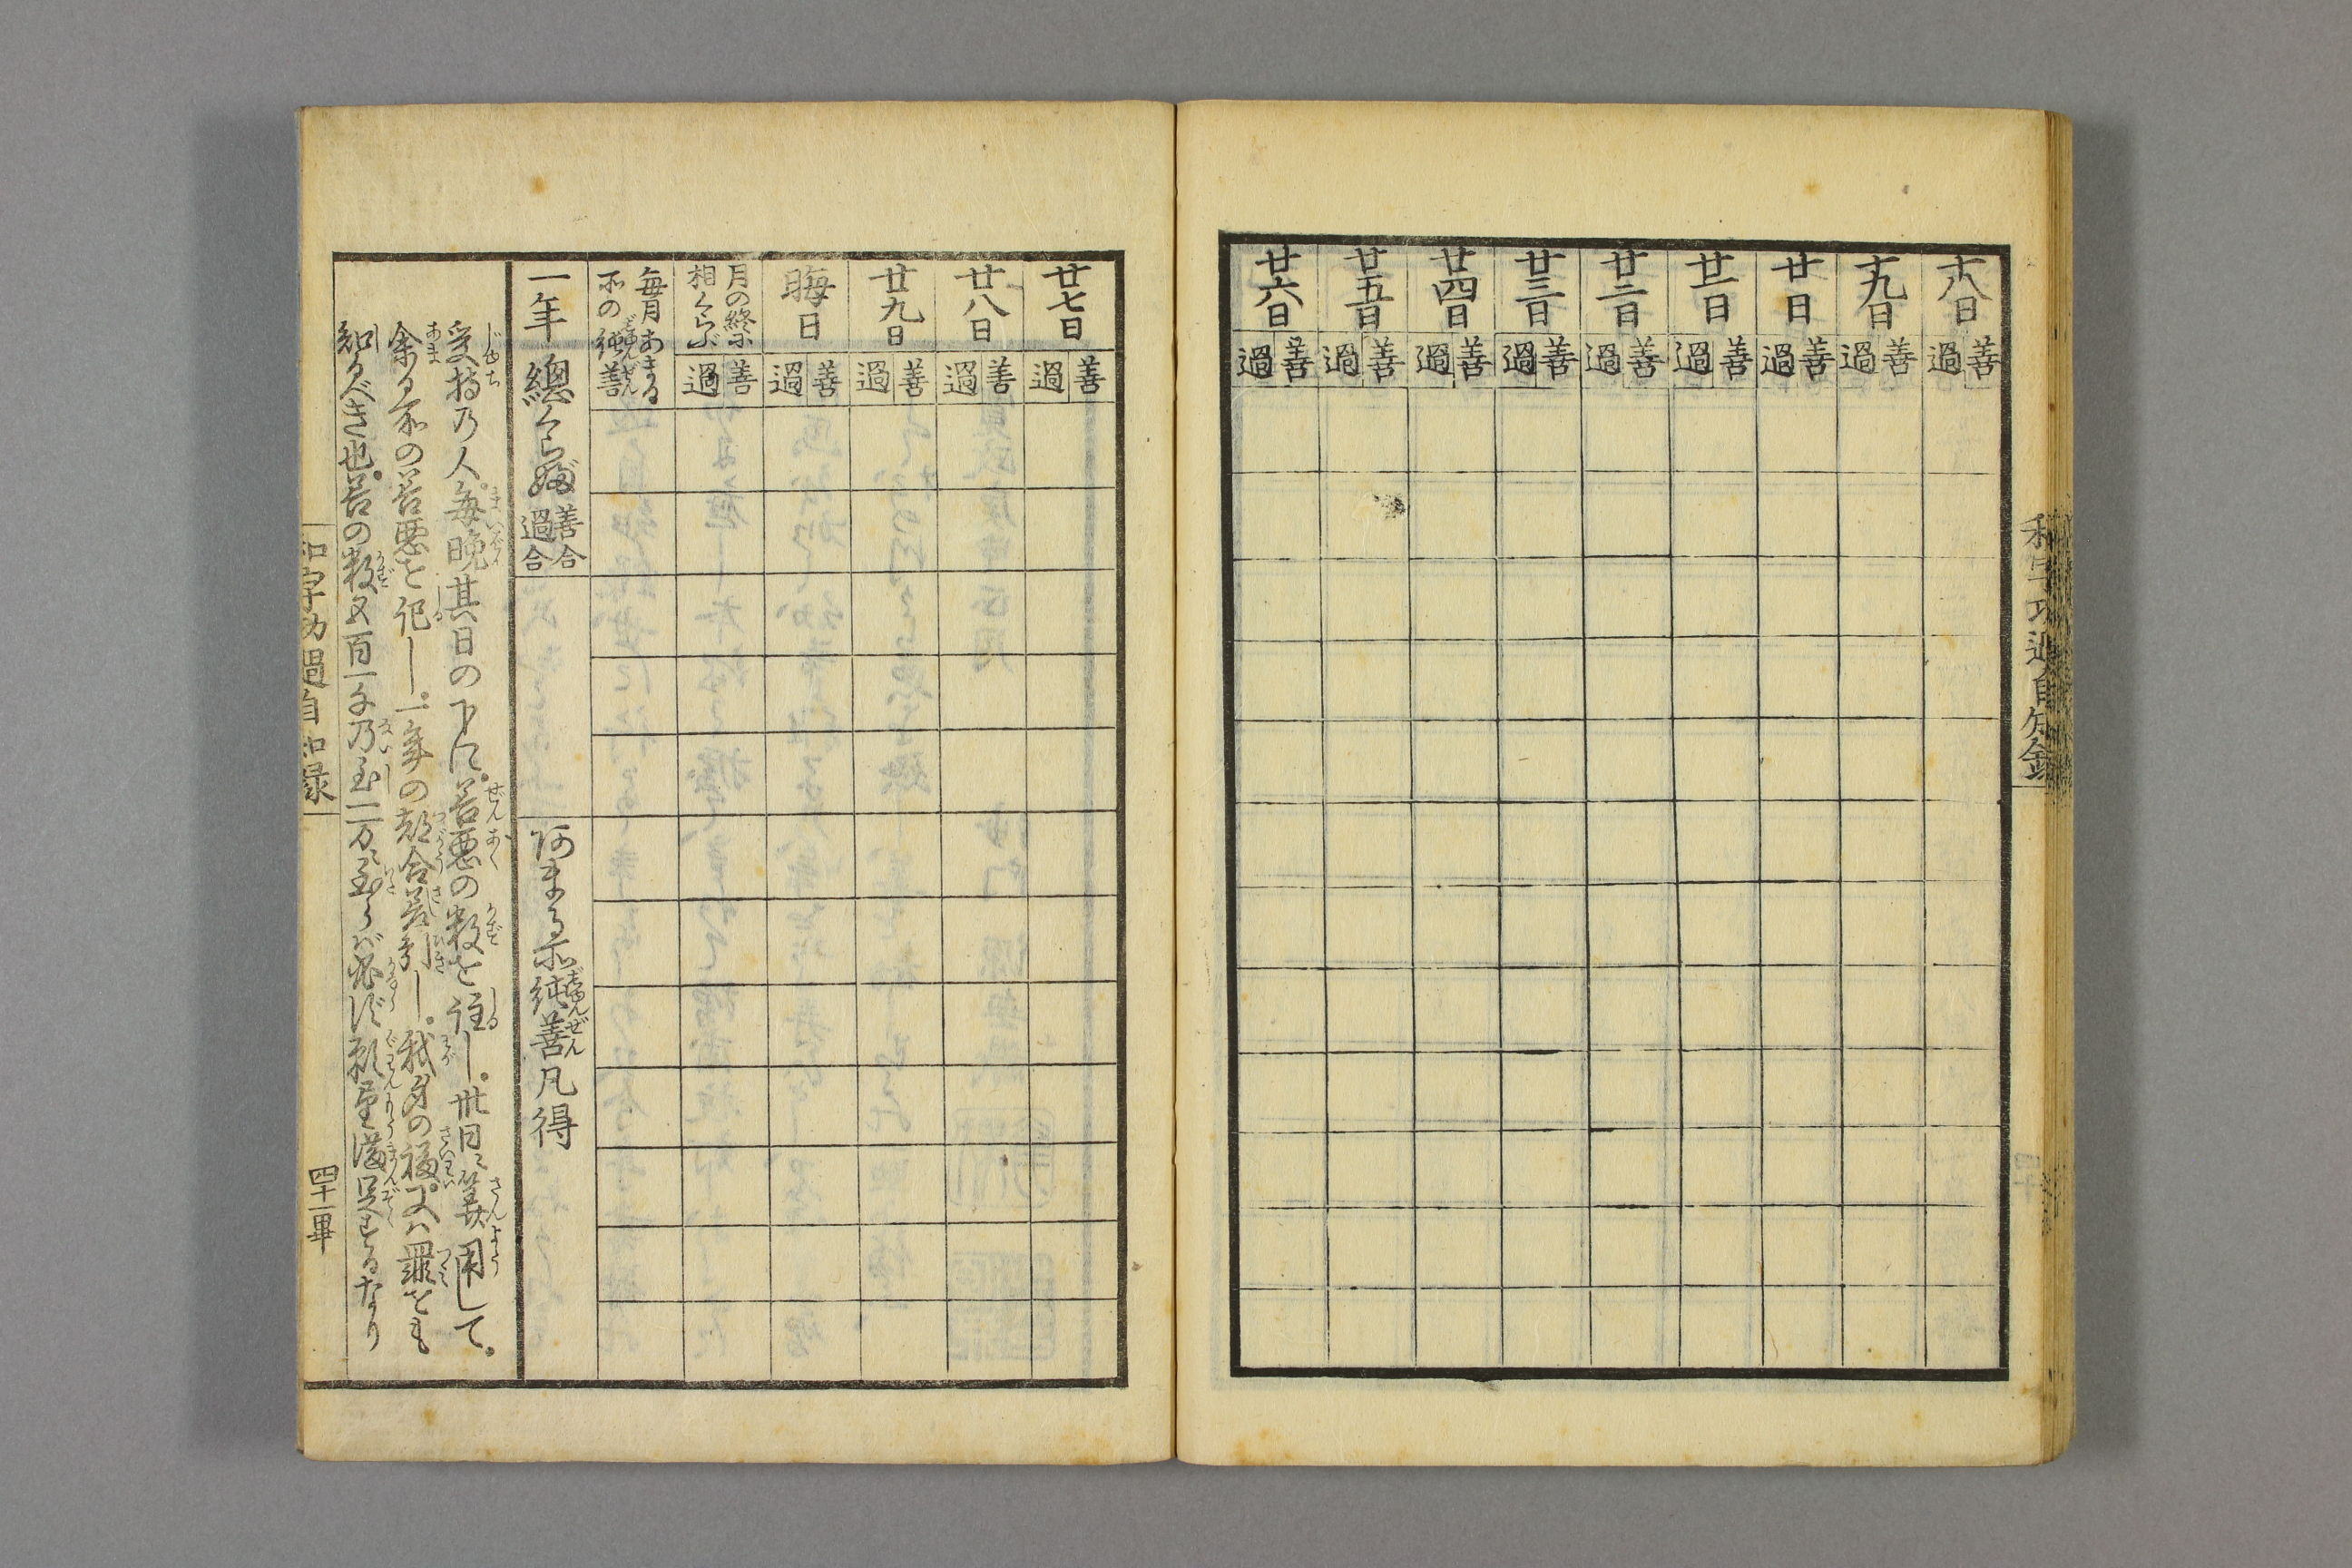 十八日 善 過
十九日 善 過
廿日 善 過
廿一日 善 過
廿二日 善 過
廿三日 善 過
廿四日 善 過
廿五日 善 過
廿六日 善 過
廿七日 善 過
廿八日 善 過
廿九日 善 過
晦日 善 過
月の終に相くらぶ 善 過
毎月あまる所の純善
一年總くらべ 善合 過合
阿まる所純善凡得
受持乃人。毎晩其日の下に。善悪の数を註し。卅日に算用して。
余る所の善悪を記し。一年の都合差引し。我身の福。又ハ罪をも
知るべき也。善の数五百一千乃至一万に至らば必ず願望満足するなり
和字功過自知録
四十一畢